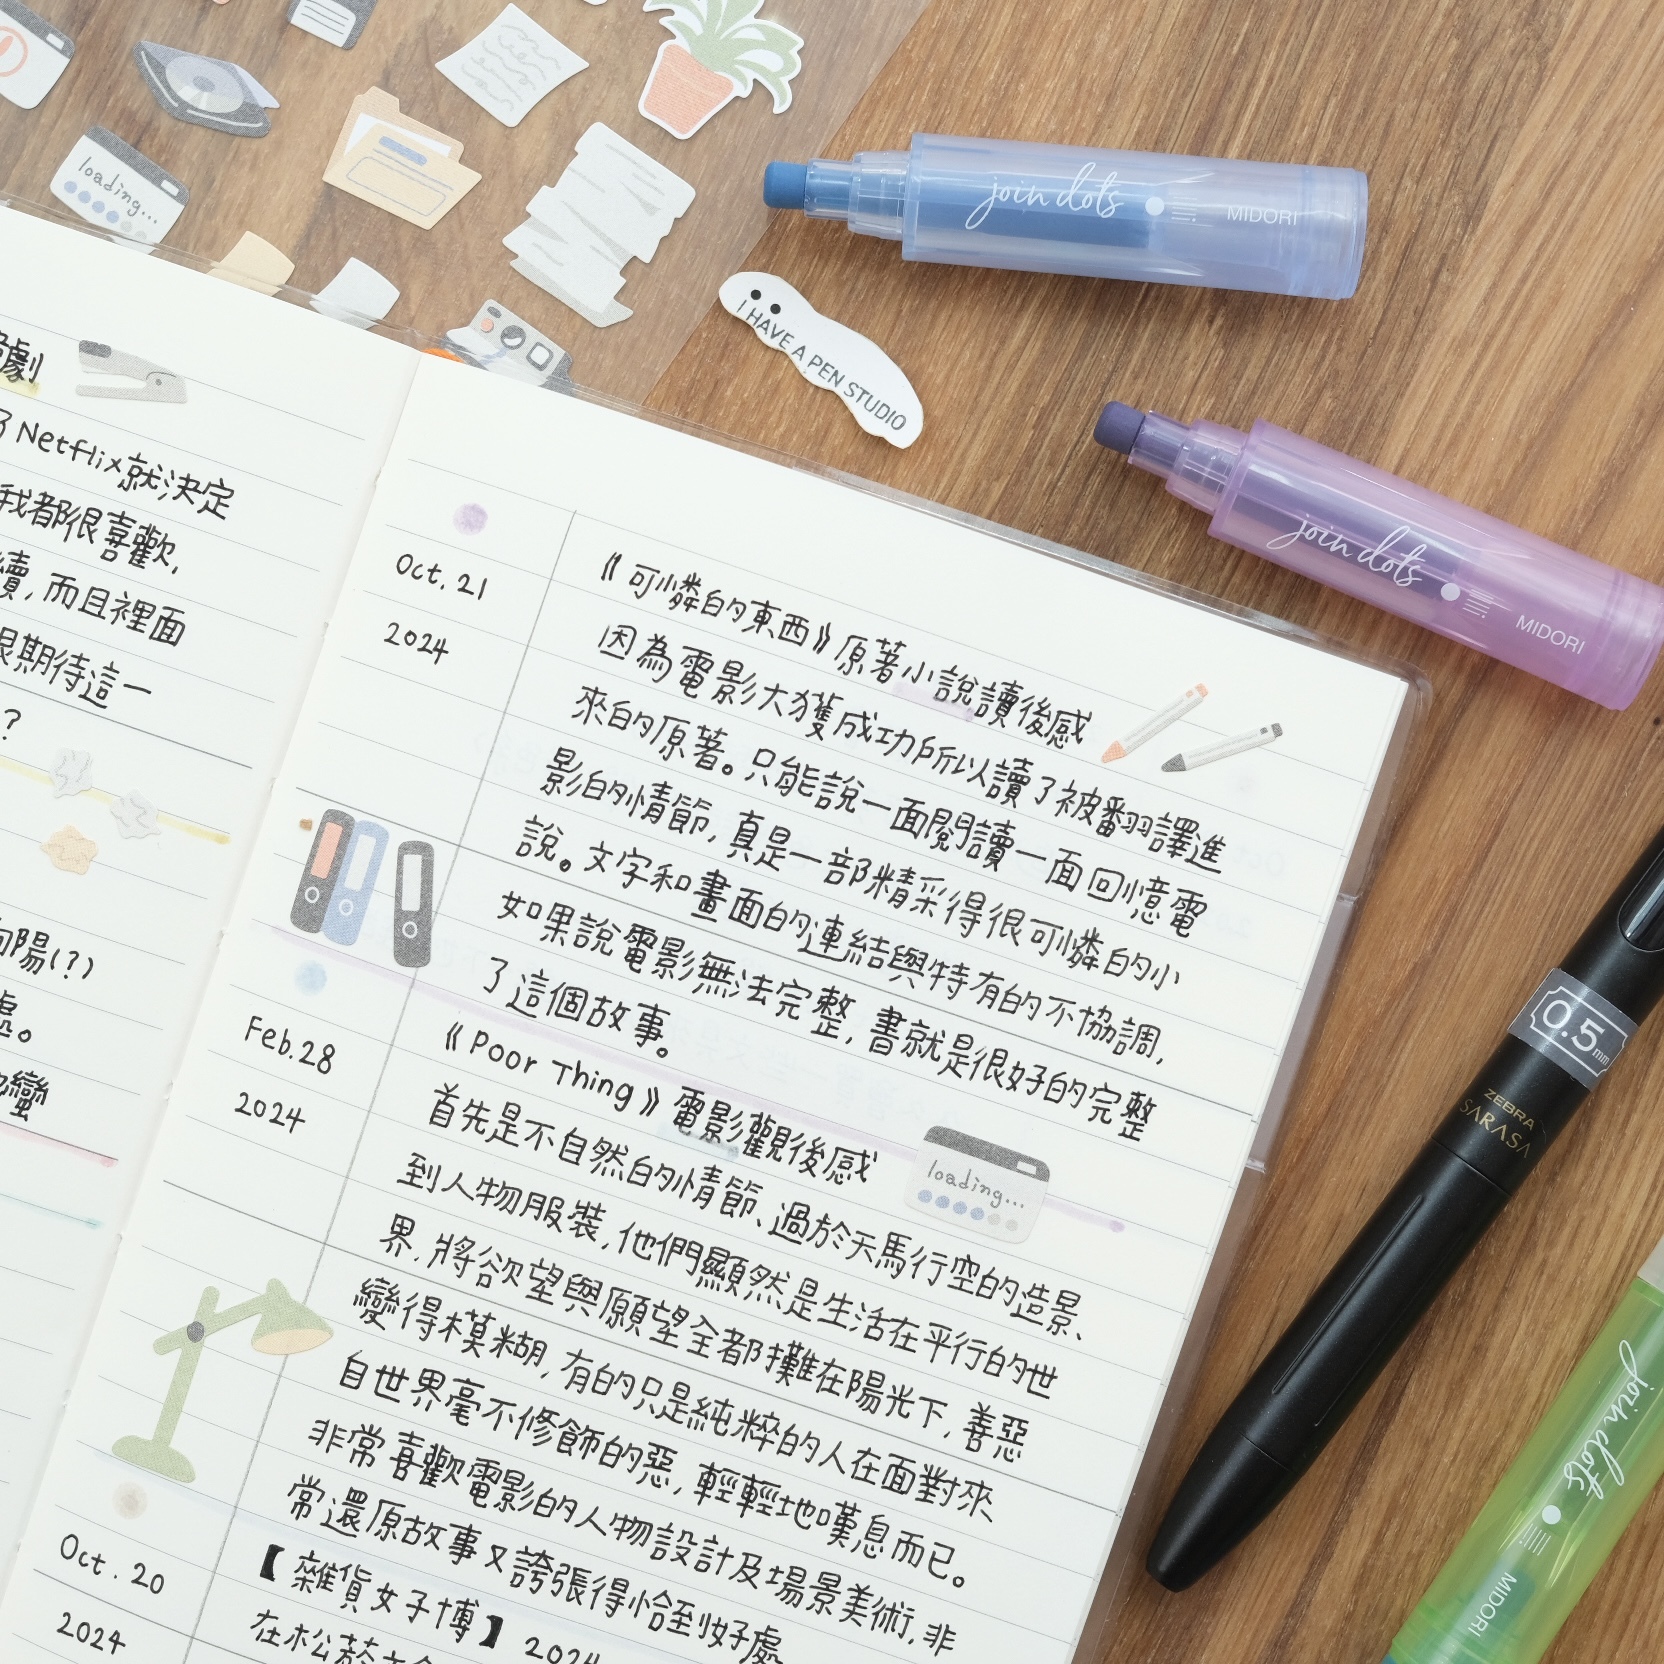 loading...
I HAVE A PEN STUDIO
join dots MIDORI
join dots MIDORI
join dots MIDORI
0.5mm
ZEBRA
SARASA
劇
了Netflix就決定
我都很喜歡,
續,而且裡面
很期待這一
?
向陽(?)
處。
戀
Oct. 21
2024
《可憐的東西》原著小說讀後感
因為電影大獲成功所以讀了被翻譯進
來的原著。只能說一面閱讀一面回憶電
影的情節,真是一部精采得很可憐的小
說。文字和畫面的連結與特有的不協調,
如果說電影無法完整,書就是很好的完整
了這個故事。
Feb.28
2024
《Poor Thing》電影觀後感
loading...
首先是不自然的情節、過於天馬行空的造景、
到人物服裝,他們顯然是生活在平行的世
界,將欲望與願望全都攤在陽光下,善惡
變得模糊,有的只是純粹的人在面對來
自世界毫不修飾的惡,輕輕地嘆息而已。
非常喜歡電影的人物設計及場景美術,非
常還原故事又誇張得恰到好處
Oct. 20
2024
【雜貨女子博】2024
在松菸文